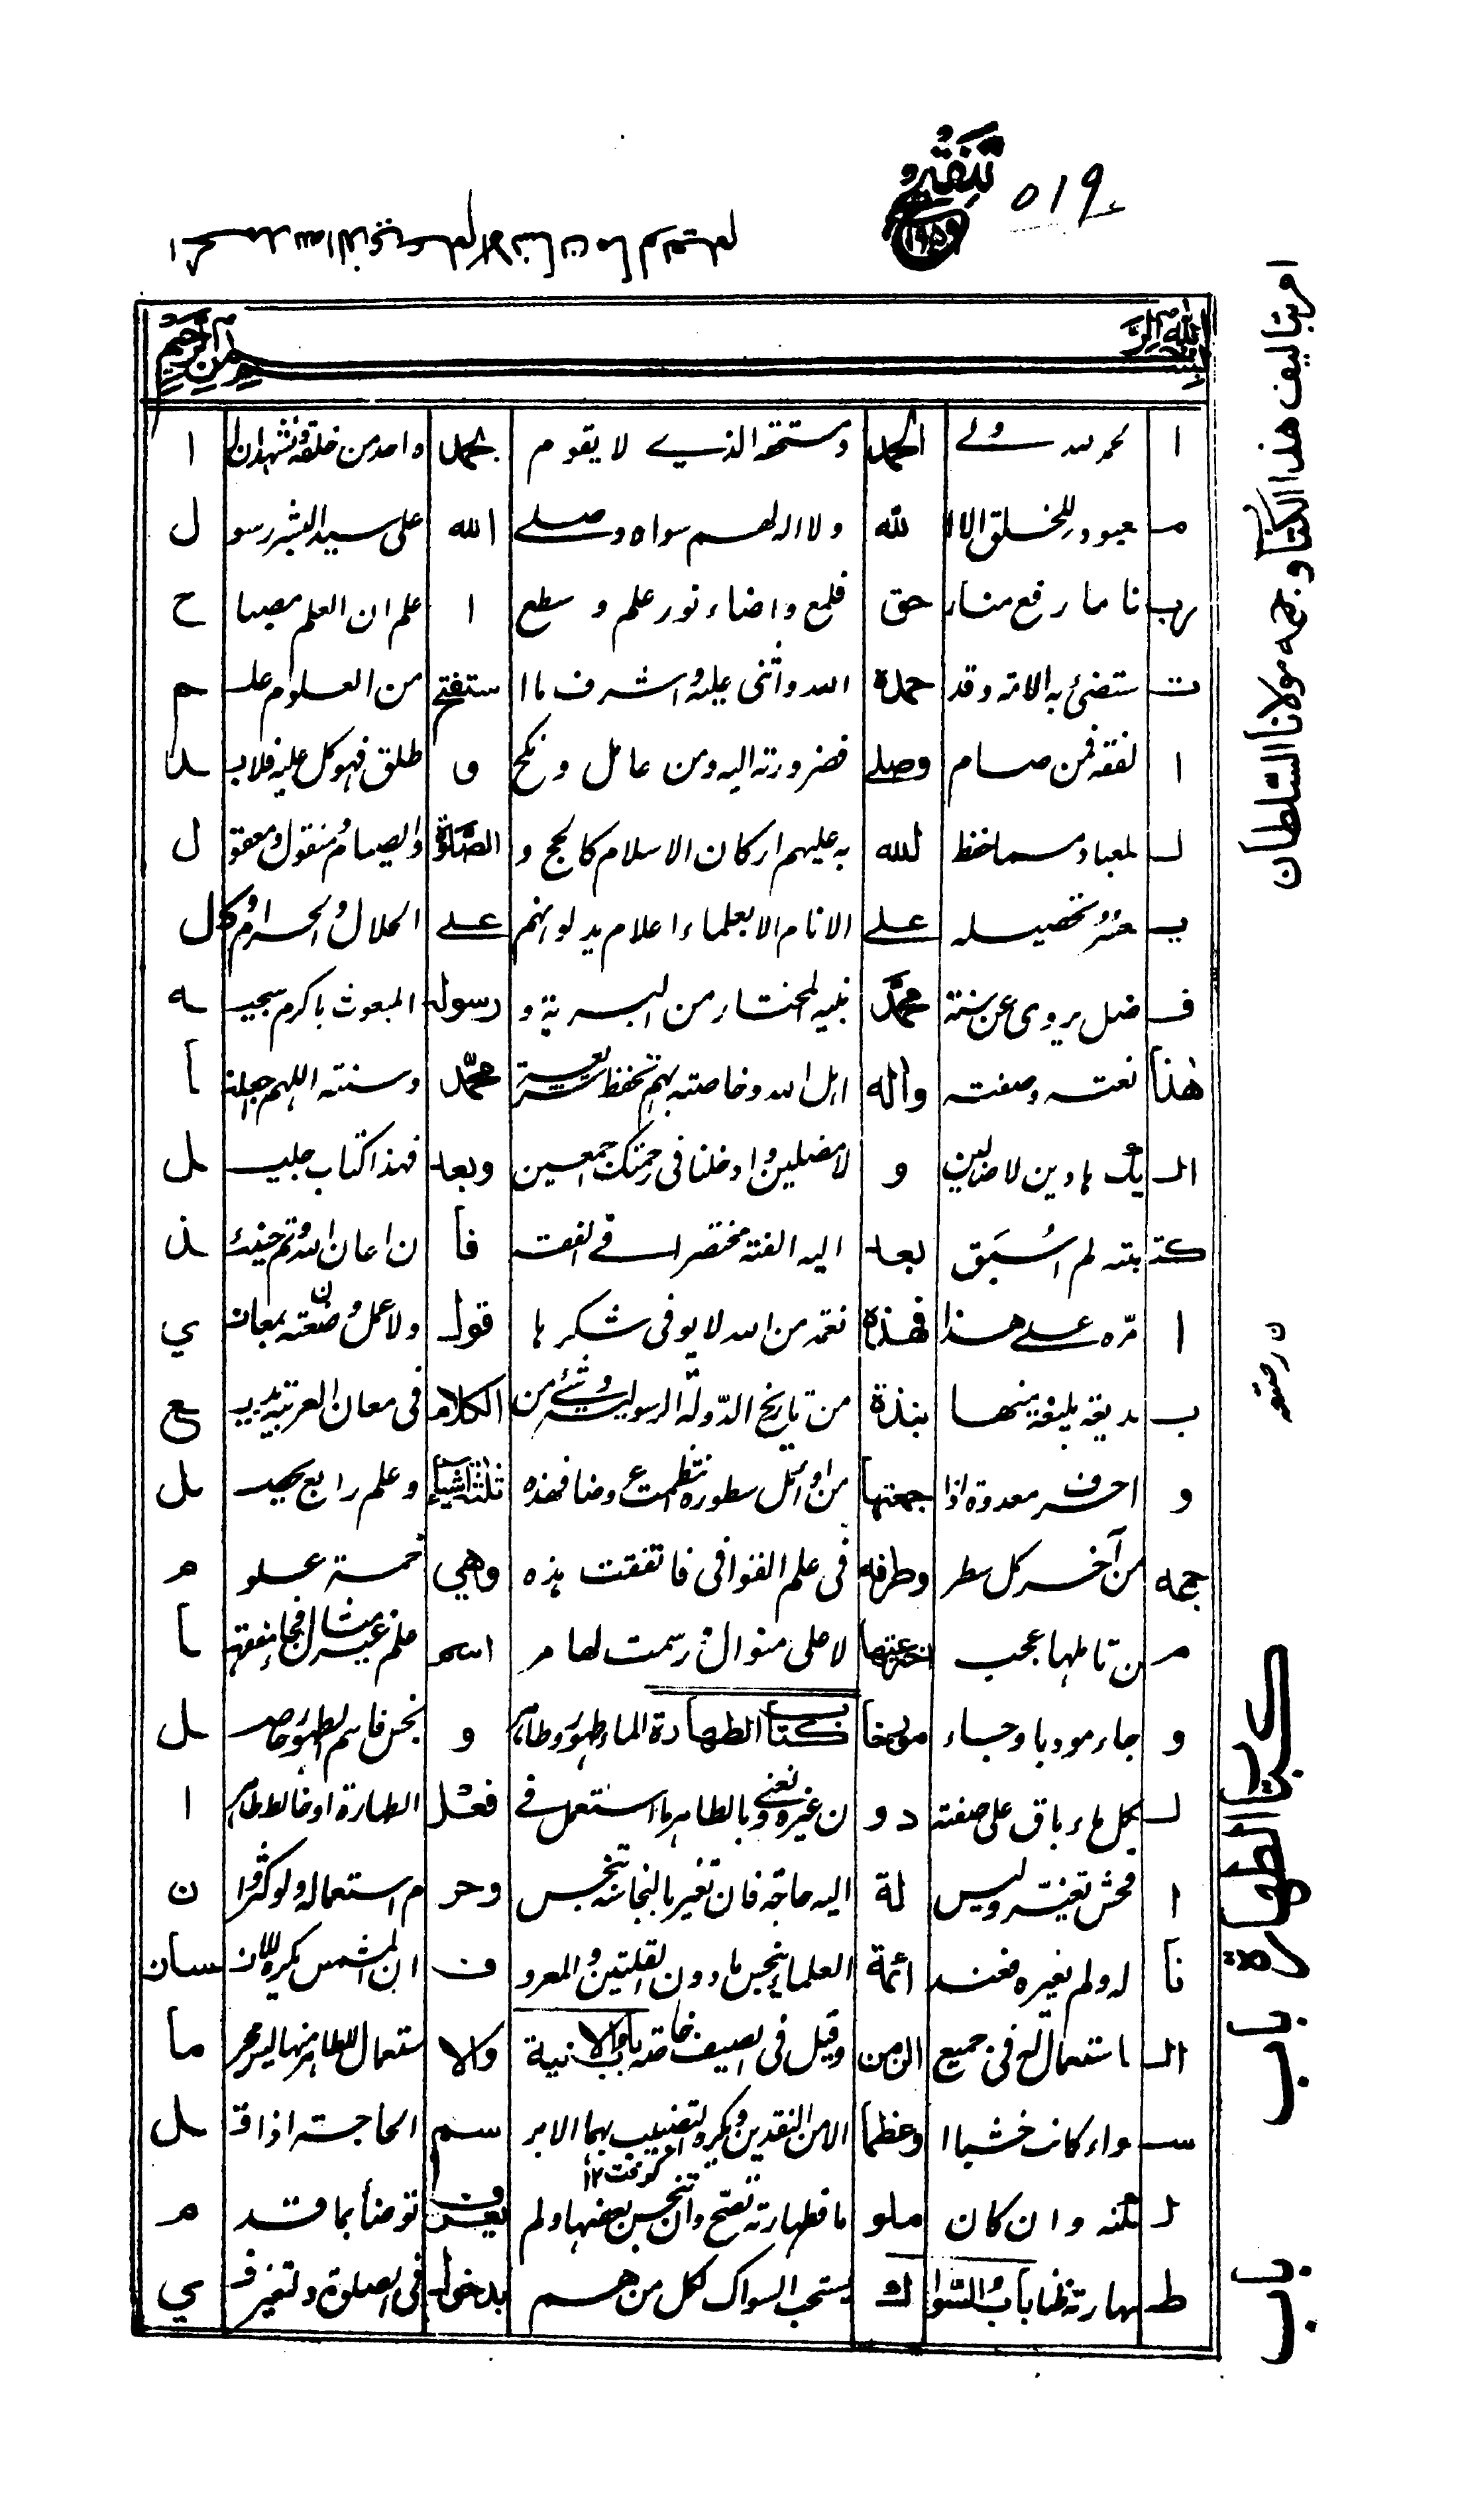 تنقيد
٥١٩
بسم الله الرحمن الرحيم
ا لحمد لله ولى الحمد ومستحقه الذي لا يقوم بحمد واحد من خلقه ونشهد ان ا
م عبود للخلق الا الله ولا اله لهم سواه وصلى الله على سيد البشر رسو ل
نا ما رفع منار حق فلمع واضاء نور علم وسطع ا علم ان العلم مصبا ح
ت ستضئ به الامة وقد حمدة الله واثنى عليه واشرف ما ا ستفتح من العلوم علم
ا لفقه فمن صام وصلى فضرورته اليه ومن عامل ونكح و طلق فهو كل عليه فلا بد
ل لعباد مما حفظ لله به عليهم اركان الاسلام كالحج و الصلوة والصيام ومنقول ومعقو ل
ي عسر تحصيله على الانام الا بعلماء اعلام يدلونهم على الحلال والحرام وكل
ف ضل يروى عن سنة محمد نبيه المختار من البرية و رسوله المبعوث باكرم سجيه
هذا نعته وصفته واله اهل الله وخاصته بهم تحفظ شريعة محمد وسنته اللهم اجعلنا
اليك هادين لا ضالين و لا مضلين وادخلنا في رحمتك اجمعين وبعد فهذا كتاب جليل
كتبته لم اسبق بعد اليه الفته مختصرا في الفقه فا ن اعان الله وتم حينئذ
ا مره على هذا فهذه نعمة من الله لا يوفى شكرها قول ولا عمل وضمنته بمعان ي
ب ديعة بليغة منها نبذة من تاريخ الدولة الرسولية وشئ من الكلام في معان العربية بديع
و احرف معدودة اذا جمعتها من اوائل سطوره نظمت عروضا فهذه ثلثة اشياء وعلم رابع يحصل
جمه من آخر كل سطر وطرفه في علم القوافي فاتفقت هذه وهي خمسة علو م
من تاملها عجب اخترعتها لا على منوال ورسمت لها م اسم علم غير مثال فجاء نفعها
و جاء مودبا وجاء موبخا كتاب الطهارة الماء طهور وطاهر و نجس فاسم الطهور حاصل
ل كل ماء باق على صفته دو ن غيره ونعني بالطاهر ما استعمل في فعل الطهارة او خالط طاهر ا
ا فحش تغيره وليس لة اليه حاجة فان تغير بالنجاسة نجس وحر م استعماله ولو كثر وا ن
نا له ولم يغيره فعند ائمة العلماء ينجس ما دون القلتين والمعرو ف ان المشمس يكره للانسان
ال استعمال له في جميع الزمن وقيل في الصيف خاصة باب الآنية والا ستعمال للطاهر منها ليس محرما
سواء كانت خشبا ا وعظما الا من النقدين ويكره التضبيب بهما الا بر سم الحاجة اذا قل
ل كنه وان كان مملو ما فطهارته تصح وان تنجس بعضها ولم يعرف توضأ بما قد م
طهارته ظنا باب السوا ك يستحب السواك لكل من هم بدخول في الصلوة ولتغير في
امر بتاليف هذا الكتاب وجمعه مولانا السلطان
كتاب الطهارة
باب
باب